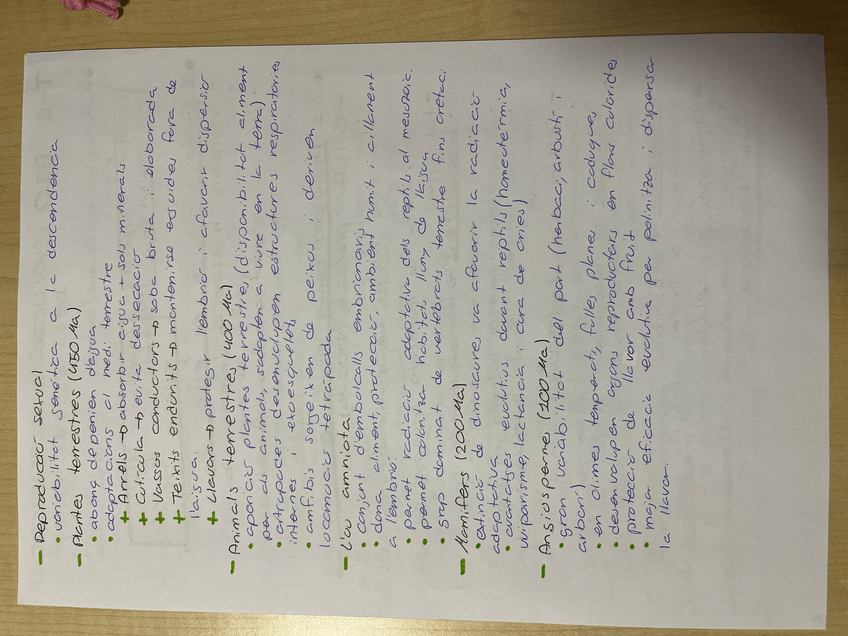 - Reproducció sexual
• variabilitat genètica a la descendència
- Plantes terrestres (450 Ma)
• abans depenien d'aigua
• adaptacions al medi terrestre
+ Arrels → absorbir aigua + sals minerals
+ Cutícula → evita dessecació
+ Vassos conductors → saba bruta i elaborada
+ Teixits endurits → mantenirse erguides fora de
l'aigua
+ Llavors → protegir l'embrió i afavorir dispersió
- Animals terrestres (400 Ma)
• aparició plantes terrestres, (disponibilitat aliment
per als animals, s'adapten a viure en la terra)
• artròpodes desenvolupen estructures respiratòries
internes i exoesquelets
• amfibis sorgeixen de peixos i deriven
locomoció tetràpoda
- L'ou amniota
• conjunt d'embolcalls embrionaris
• dona aliment, protecció, ambient humit i aïllament
a l'embrió
• permet radiació adaptativa dels rèptils al mesozoic.
• permet colonitza hàbitats lluny de l'aigua
• grup dominat de vertebrats terrestre fins cretaci
- Mamífers (200 Ma)
• extinció de dinosaures va afavorir la radiació
adaptativa
• avantatges evolutius davant reptils (homeotermia,
viviparisme, lactancia i cura de cries)
- Angiospermes (200 Ma)
• gran variabilitat dell part (herbaci, arbustí i
arbori)
• en climes temperats, fulles planes i caduques
• desenvolupen òrgans reproductors en flors colorides
• protecció de llavor amb fruit
• major eficacia evolutiva per polinitza i dispersar
la llavor.